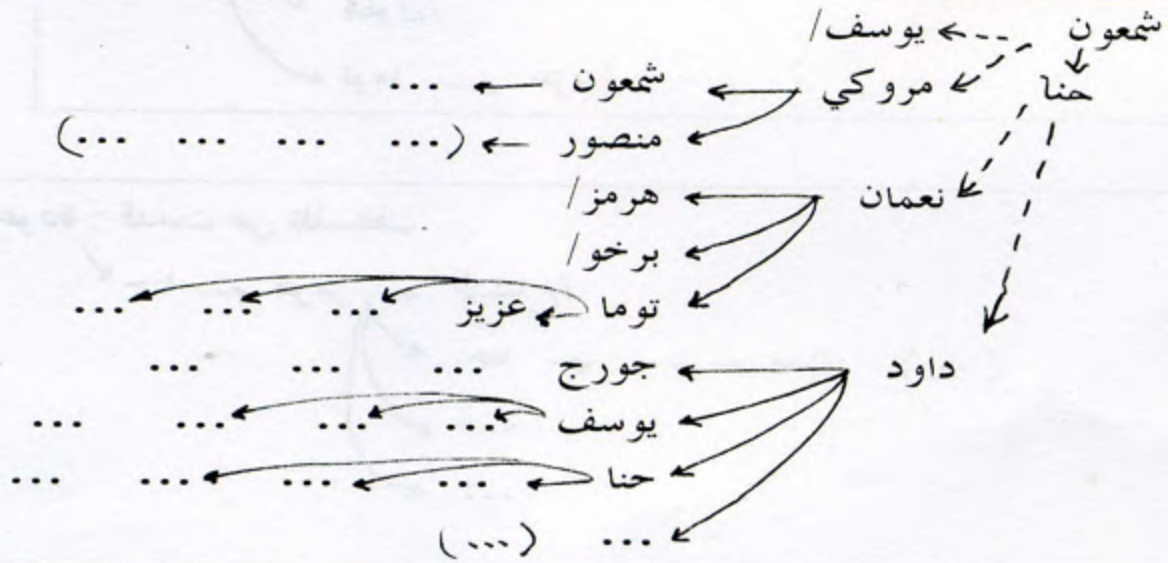 شمعون يوسف/
حنا مروكي شمعون ...
منصور (... ... ... ...
نعمان هرمز/
برخو/
توما عزيز ... ... ...
داود جورج ... ... ...
يوسف ... ... ... ...
حنا ... ... ... ...
... (...)